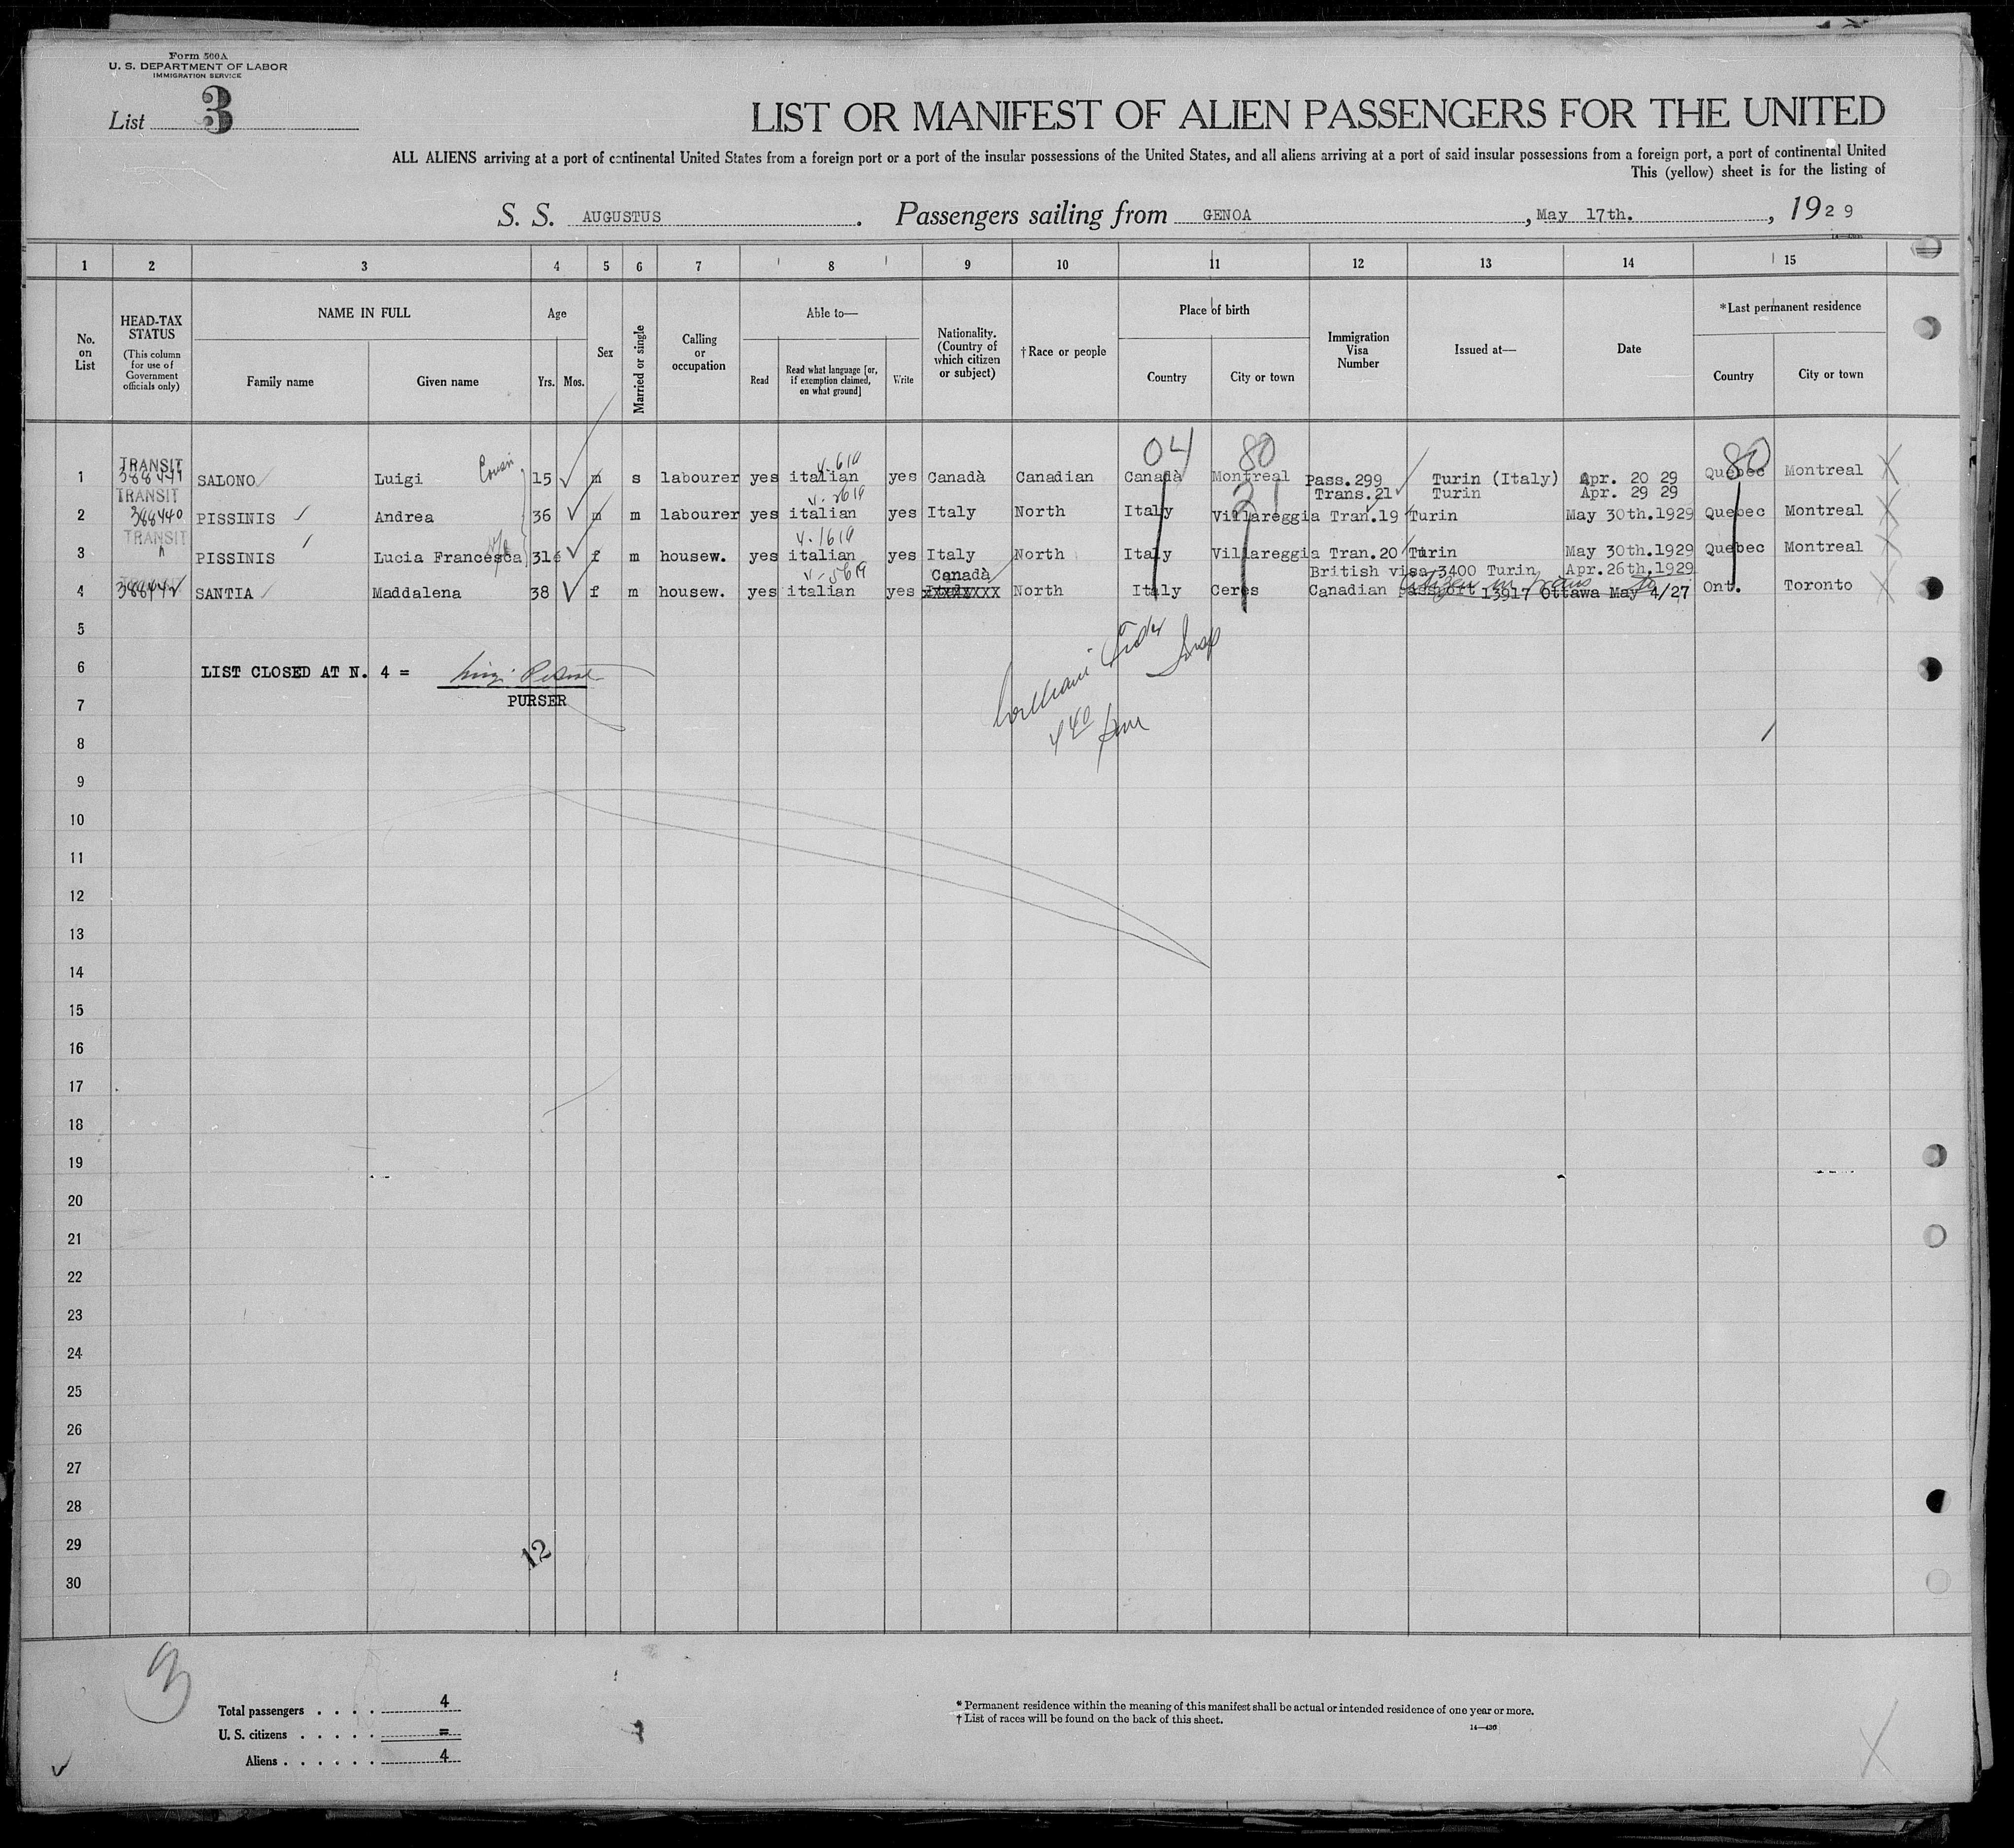 Form 500A
U. S. DEPARTMENT OF LABOR
IMMIGRATION SERVICE
List 3
LIST OR MANIFEST OF ALIEN PASSENGERS FOR THE UNITED
ALL ALIENS arriving at a port of continental United States from a foreign port or a port of the insular possessions of the United States, and all aliens arriving at a port of said insular possessions from a foreign port, a port of continental United
This (yellow) sheet is for the listing of
S. S. AUGUSTUS. Passengers sailing from GENOA, May 17th., 1929
1 2 3 4 5 6 7 8 9 10 11 12 13 14 15
No. on List
HEAD-TAX STATUS (This column for use of Government officials only)
NAME IN FULL
Family name
Given name
Age
Yrs. Mos.
Sex
Married or single
Calling or occupation
Able to—
Read
Read what language [or, if exemption claimed, on what ground]
Write
Nationality. (Country of which citizen or subject)
† Race or people
Place of birth
Country
City or town
Immigration Visa Number
Issued at—
Date
*Last permanent residence
Country
City or town
04 80 80
TRANSIT
1 SALONO Luigi Cousin 15 m s labourer yes italian yes Canadà Canadian Canadà Montreal Pass.299 Turin (Italy) Apr. 20 29 Quebec Montreal
TRANSIT Trans.21 Turin Apr. 29 29
2 388440 PISSINIS Andrea 36 m m labourer yes italian yes Italy North Italy Villareggia Tran.19 Turin May 30th.1929 Quebec Montreal
TRANSIT
3 PISSINIS Lucia Francesca 31 f m housew. yes italian yes Italy North Italy Villareggia Tran.20 Turin May 30th.1929 Quebec Montreal
Canadà British visa 3400 Turin Apr.26th.1929
4 SANTIA Maddalena 38 f m housew. yes italian yes North Italy Ceres Canadian passport 13917 Ottawa May 4/27 Ont. Toronto
5
6 LIST CLOSED AT N. 4 =
PURSER
7
8
9
10
11
12
13
14
15
16
17
18
19
20
21
22
23
24
25
26
27
28
29
12
30
3
Total passengers . . . . 4
U. S. citizens . . . . . =
Aliens . . . . . . 4
* Permanent residence within the meaning of this manifest shall be actual or intended residence of one year or more.
† List of races will be found on the back of this sheet.
14—436